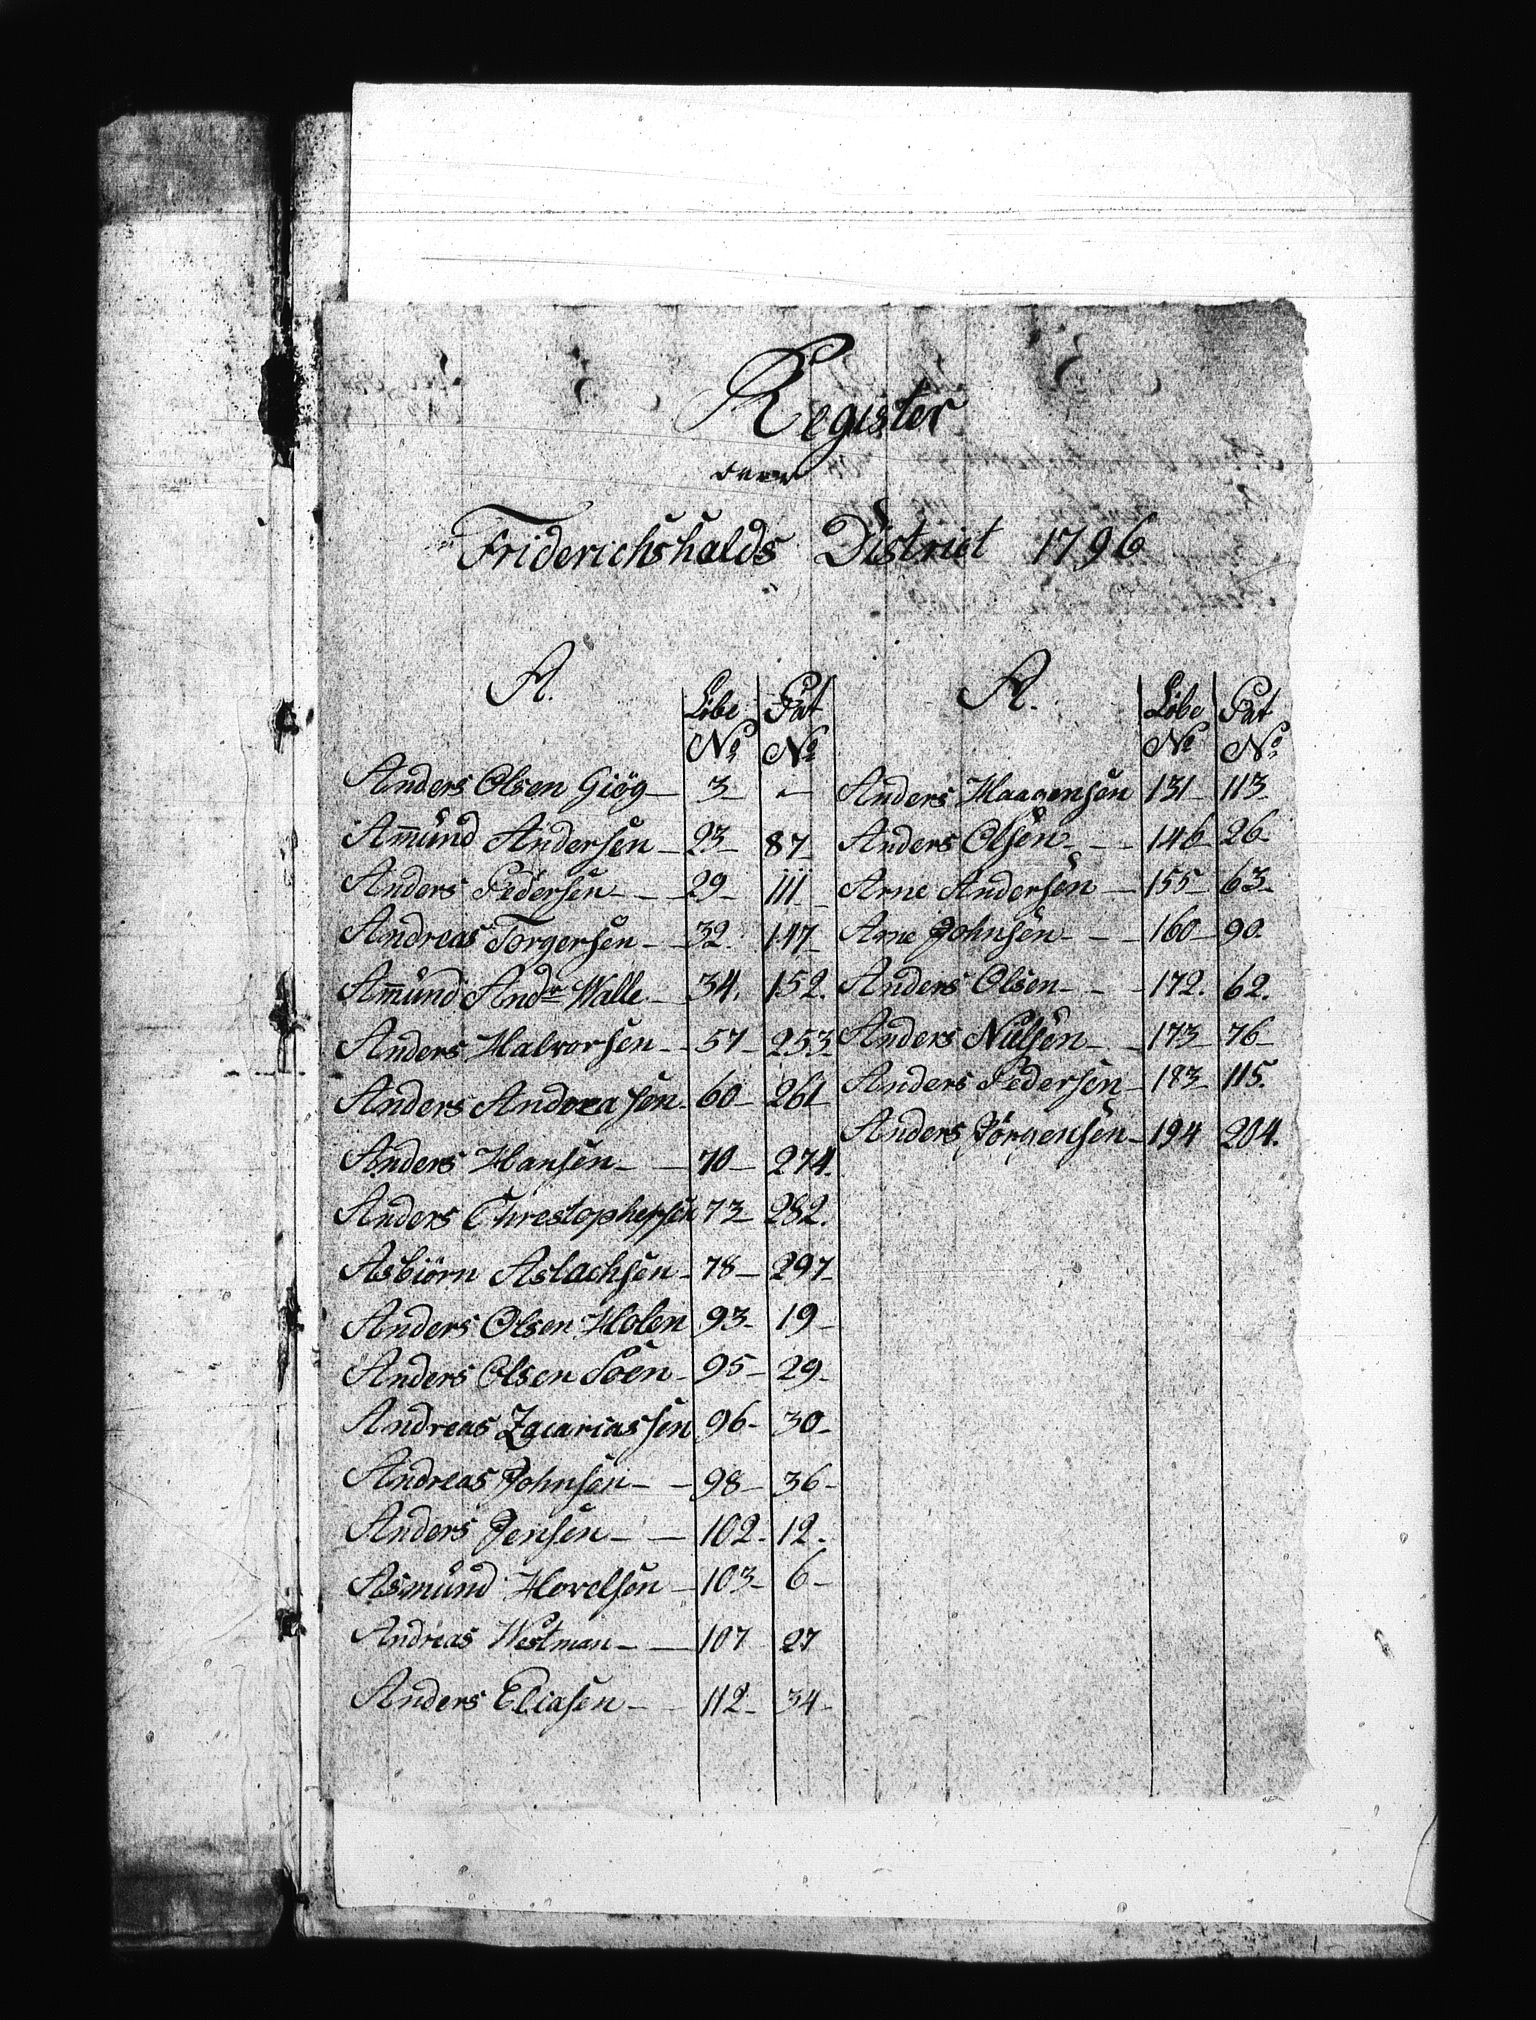 Register
over
Friderichshalds District 1796
A.
Löbe No Pat No
Anders Olsen Giög 3 -
Amund Andersen 23 87
Anders Pedersen 29 111
Andreas Torgersen 32 147
Amund Andr Walle 34. 152.
Anders Halvorsen 57 253
Anders Andreasen 60 261
Anders Hansen 70 274.
Anders Chrestophersen 73 282.
Asbiörn Aslachsen 78 297
Anders Olsen Holen 93 19
Anders Olsen Soen 95 29
Andreas Zacariassen 96 30
Andreas Johnsen 98 36
Anders Jensen 102 12
Asmund Hovelsen 103 6
Andreas Westman 107 27
Anders Eliasen 112 34
A.
Löbe No Pat No
Anders Haagensen 131 113
Anders Olsen 146 26
Arne Andersen 155 63
Arne Johnsen 160 90.
Anders Olsen 172. 62.
Anders Nielsen 173 76
Anders Pedersen 183 115.
Anders Jörgensen 194 204.